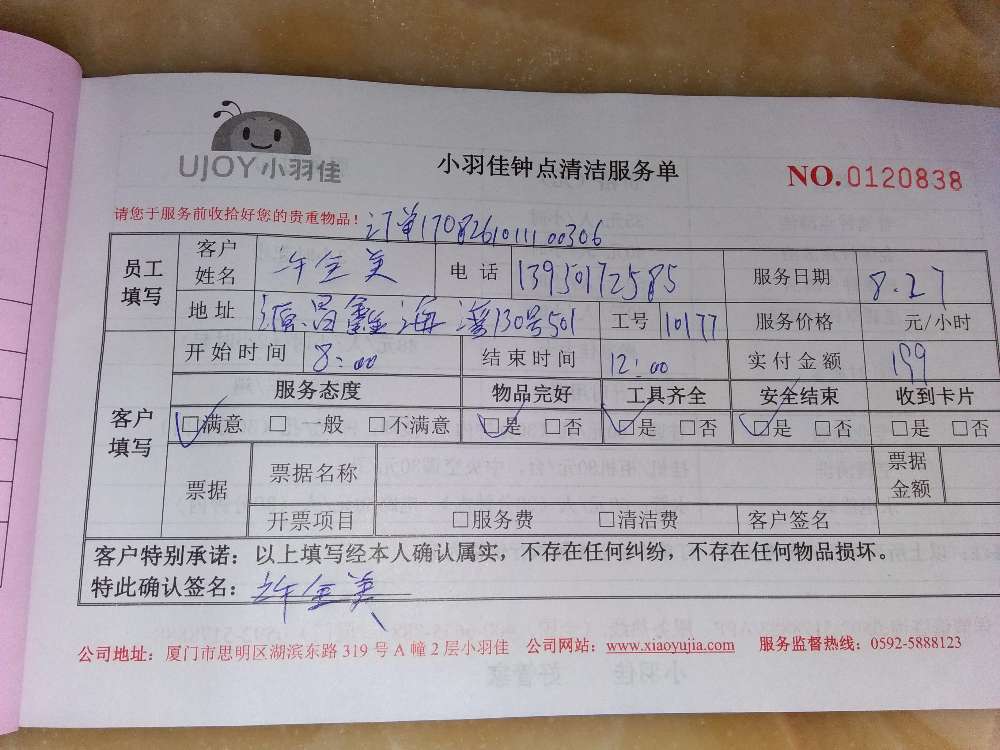 UJOY小羽佳
小羽佳钟点清洁服务单
NO.0120838
请您于服务前收拾好您的贵重物品！订单1708261011100306
员工填写 客户姓名 许金美 电话 13950172585 服务日期 8.27
地址 源昌鑫海湾130号501 工号 10177 服务价格 元/小时
客户填写 开始时间 8:00 结束时间 12:00 实付金额 199
服务态度 物品完好 工具齐全 安全结束 收到卡片
☑满意 □一般 □不满意 ☑是 □否 ☑是 □否 ☑是 □否 □是 □否
票据 票据名称 票据金额
开票项目 □服务费 □清洁费 客户签名
客户特别承诺：以上填写经本人确认属实，不存在任何纠纷，不存在任何物品损坏。
特此确认签名：许金美
公司地址：厦门市思明区湖滨东路 319 号 A 幢 2 层小羽佳 公司网站：www.xiaoyujia.com 服务监督热线：0592-5888123